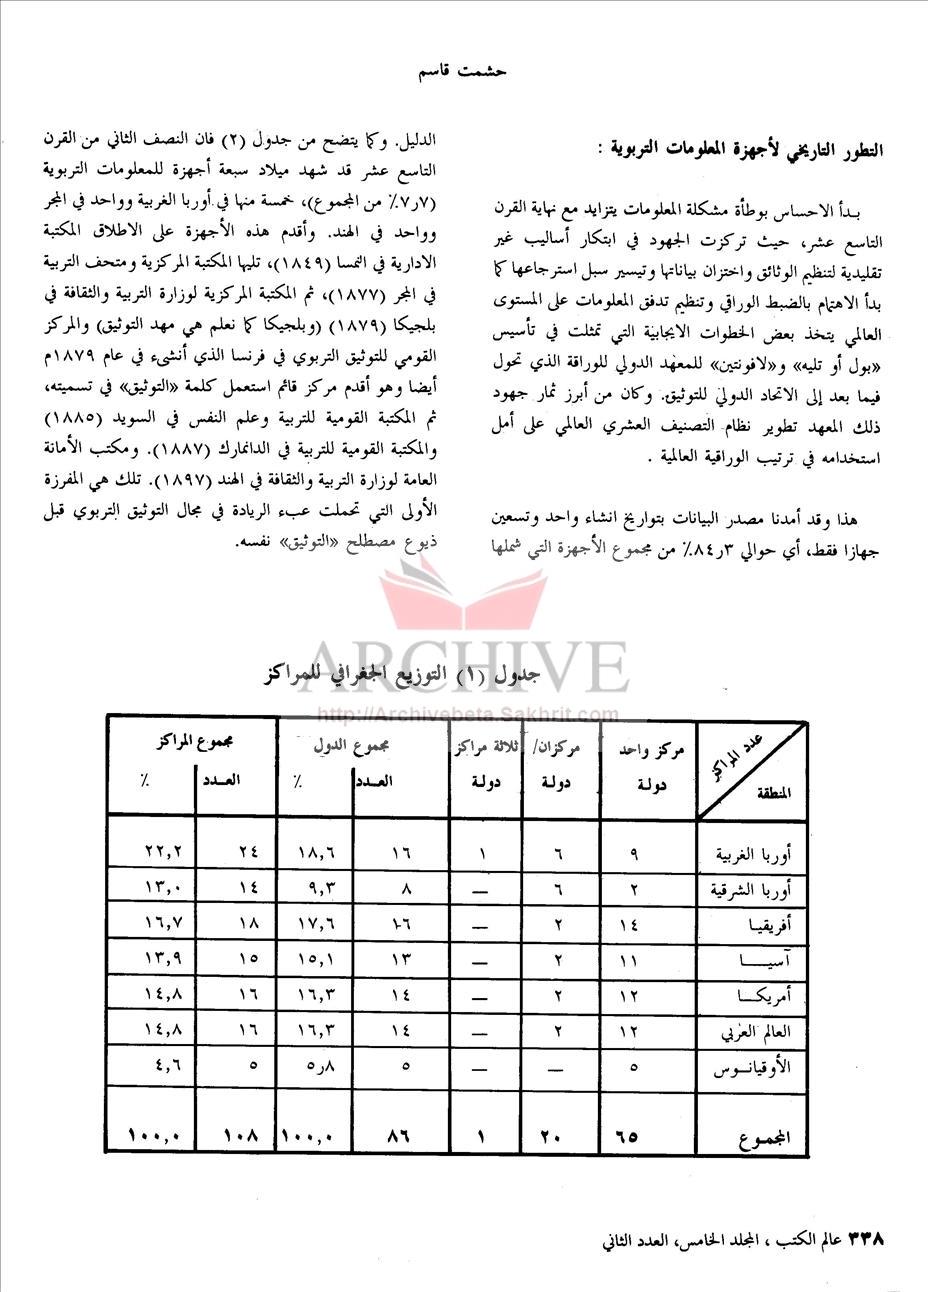 حشمت قاسم
التطور التاريخي لأجهزة المعلومات التربوية :
بدأ الاحساس بوطأة مشكلة المعلومات يتزايد مع نهاية القرن
التاسع عشر، حيث تركزت الجهود في ابتكار أساليب غير
تقليدية لتنظيم الوثائق واختزان بياناتها وتيسير سبل استرجاعها كما
بدأ الاهتمام بالضبط الوراقي وتنظيم تدفق المعلومات على المستوى
العالمي يتخذ بعض الخطوات الايجابية التي تمثلت في تأسيس
«بول أو تليه» و«لافونتين» للمعهد الدولي للوراقة الذي تحول
فيما بعد إلى الاتحاد الدولي للتوثيق. وكان من أبرز ثمار جهود
ذلك المعهد تطوير نظام التصنيف العشري العالمي على أمل
استخدامه في ترتيب الوراقية العالمية .
هذا وقد أمدنا مصدر البيانات بتواريخ انشاء واحد وتسعين
جهازا فقط، أي حوالي ٨٤٫٣٪ من مجموع الأجهزة التي شملها
الدليل. وكما يتضح من جدول (٢) فان النصف الثاني من القرن
التاسع عشر قد شهد ميلاد سبعة أجهزة للمعلومات التربوية
(٧ر٧٪ من المجموع)، خمسة منها في أوربا الغربية وواحد في المجر
وواحد في الهند. وأقدم هذه الأجهزة على الاطلاق المكتبة
الادارية في النمسا (١٨٤٩)، تليها المكتبة المركزية ومتحف التربية
في المجر (١٨٧٧)، ثم المكتبة المركزية لوزارة التربية والثقافة في
بلجيكا (١٨٧٩) (وبلجيكا كما نعلم هي مهد التوثيق) والمركز
القومي للتوثيق التربوي في فرنسا الذي أنشىء في عام ١٨٧٩م
أيضا وهو أقدم مركز قائم استعمل كلمة «التوثيق» في تسميته،
ثم المكتبة القومية للتربية وعلم النفس في السويد (١٨٨٥)
والمكتبة القومية للتربية في الدانمارك (١٨٨٧). ومكتب الأمانة
العامة لوزارة التربية والثقافة في الهند (١٨٩٧). تلك هي المفرزة
الأولى التي تحملت عبء الريادة في مجال التوثيق التربوي قبل
ذيوع مصطلح «التوثيق» نفسه.
ARCHIVE
http://Archivebeta.Sakhrit.com
جدول (١) التوزيع الجغرافي للمراكز
عدد المراكز المنطقة | مركز واحد دولة | مركزان/ دولة | ثلاثة مراكز دولة | مجموع الدول العـدد ٪ | مجموع المراكز العـدد ٪
أوربا الغربية ٩ ٦ ١ ١٦ ١٨,٦ ٢٤ ٢٢,٢
أوربا الشرقية ٢ ٦ — ٨ ٩,٣ ١٤ ١٣,٠
أفريقيـا ١٤ ٢ — ١٦ ١٧,٦ ١٨ ١٦,٧
آسيــا ١١ ٢ — ١٣ ١٥,١ ١٥ ١٣,٩
أمريكـا ١٢ ٢ — ١٤ ١٦,٣ ١٦ ١٤,٨
العالم العربي ١٢ ٢ — ١٤ ١٦,٣ ١٦ ١٤,٨
الأوقيانـوس ٥ — — ٥ ٥ر٨ ٥ ٤,٦
المجموع ٦٥ ٢٠ ١ ٨٦ ١٠٠,٠ ١٠٨ ١٠٠,٠
٣٣٨ عالم الكتب ، المجلد الخامس، العدد الثاني